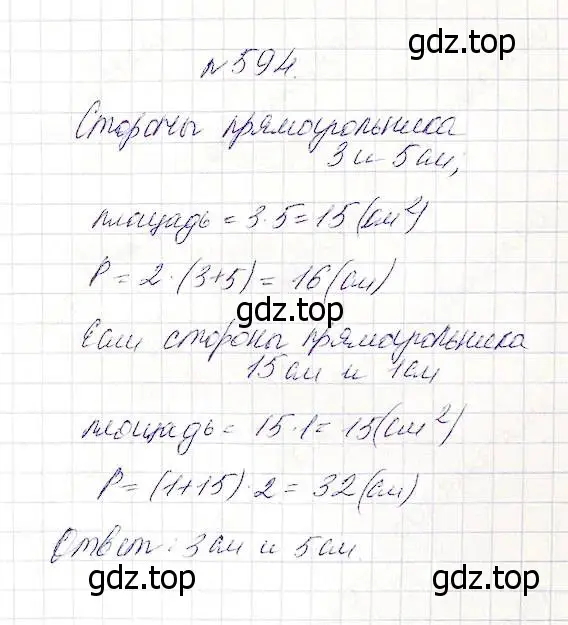 gdz.top
№ 594.
Стороны прямоугольника
3 и 5 см;
площадь = 3·5 = 15 (см²)
P = 2·(3+5) = 16 (см)
gdz.top
Если стороны прямоугольника
15 см и 1 см
площадь = 15·1 = 15 (см²)
P = (1+15)·2 = 32 (см)
Ответ: 3 см и 5 см.
gdz.top gdz.top